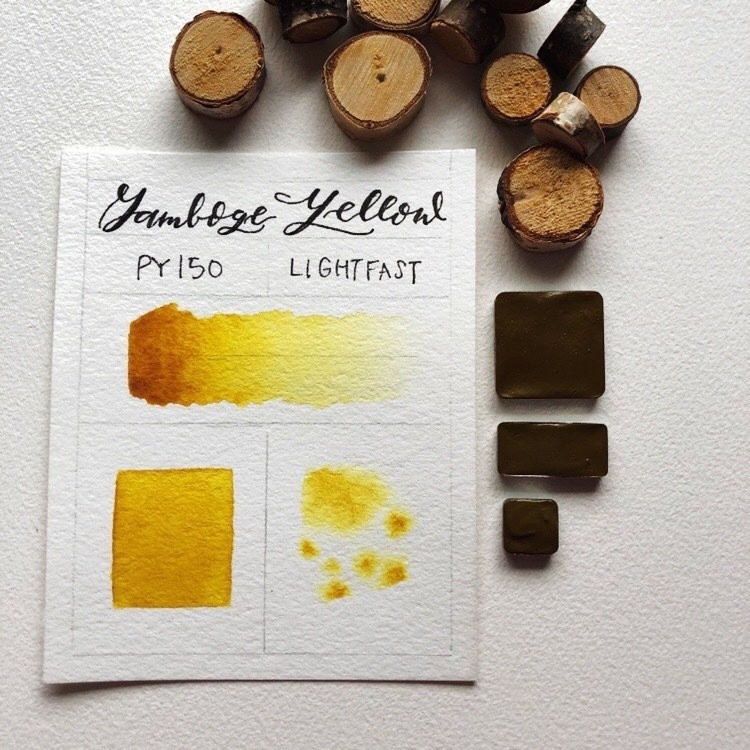 Gamboge Yellow
PY150 LIGHTFAST